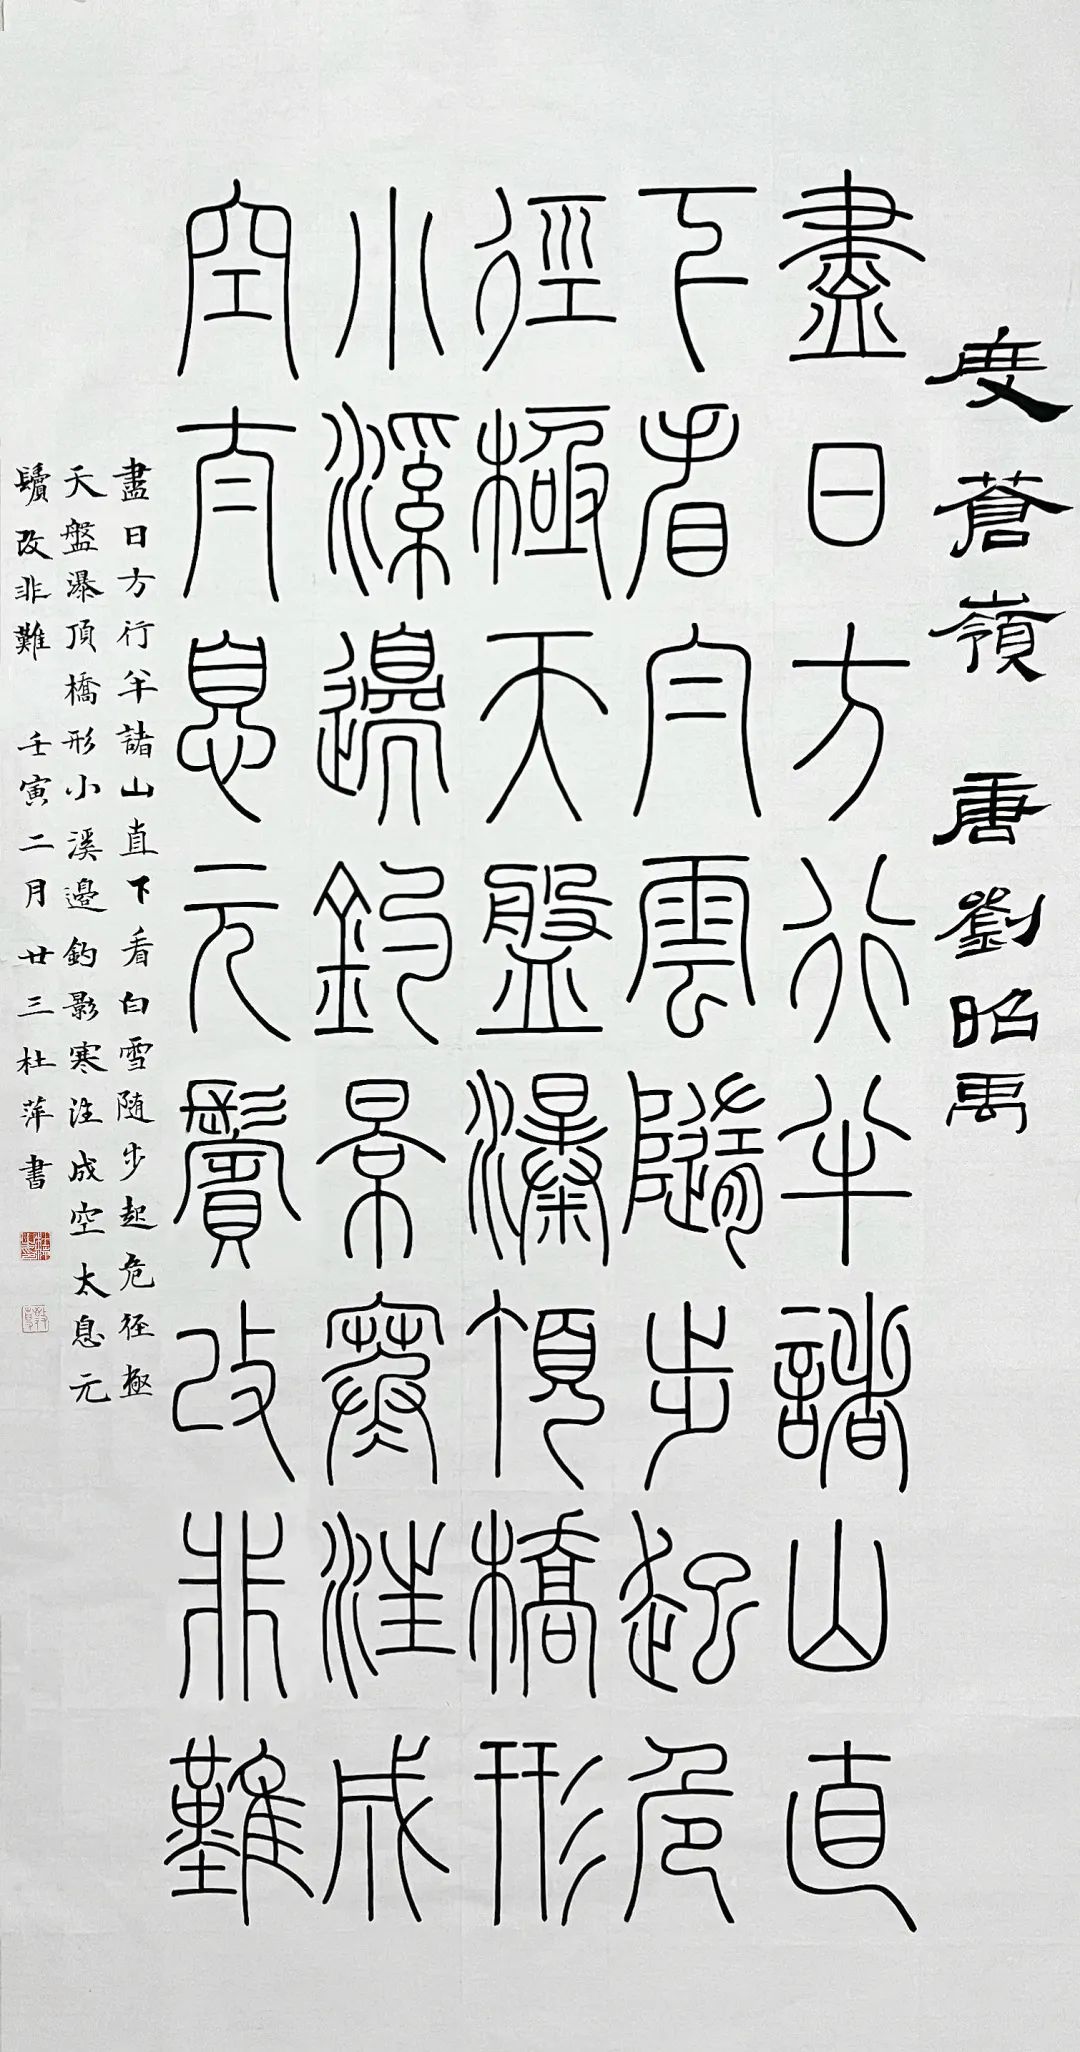 度蒼嶺 唐劉昭禹
盡日方行半諸山直
下看白雲隨步起危
徑極天盤瀑頂橋形
小溪邊釣景寒汪成
空太息元鬢改非難
盡日方行半諸山直下看白雪随步起危径極
天盤瀑頂橋形小溪邊釣影寒注成空太息元
鬢改非難 壬寅二月廿三杜萍書